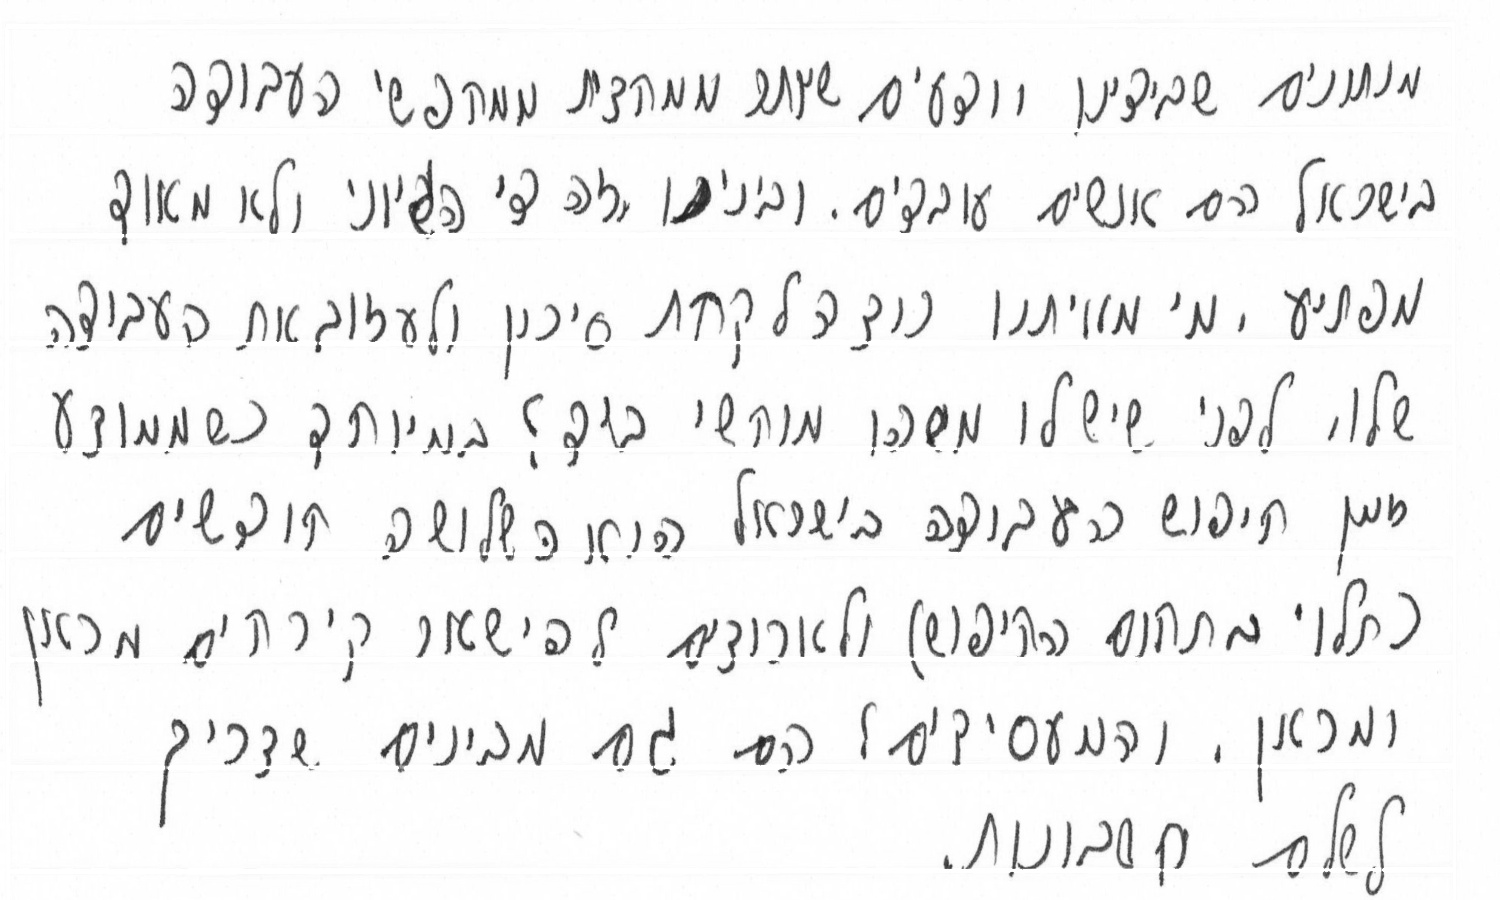 מנתונים שבידינו יודעים שיותר ממחצית ממחפשי העבודה
בישראל הם אנשים עובדים. ובינינו זה די הגיוני ולא מאוד
מפתיע, מי מאיתנו רוצה לקחת סיכון ולעזוב את העבודה
שלו, לפני שיש לו משהו מוחשי ביד? במיוחד כשממוצע
זמן חיפוש העבודה בישראל הוא השלושה חודשים
(תלוי בתחום החיפוש) ולארוצים לפישאר קירחים מכאן
ומכאן. והמעסיקים? הם גם מבינים שצריך
לשלם חשבונות.